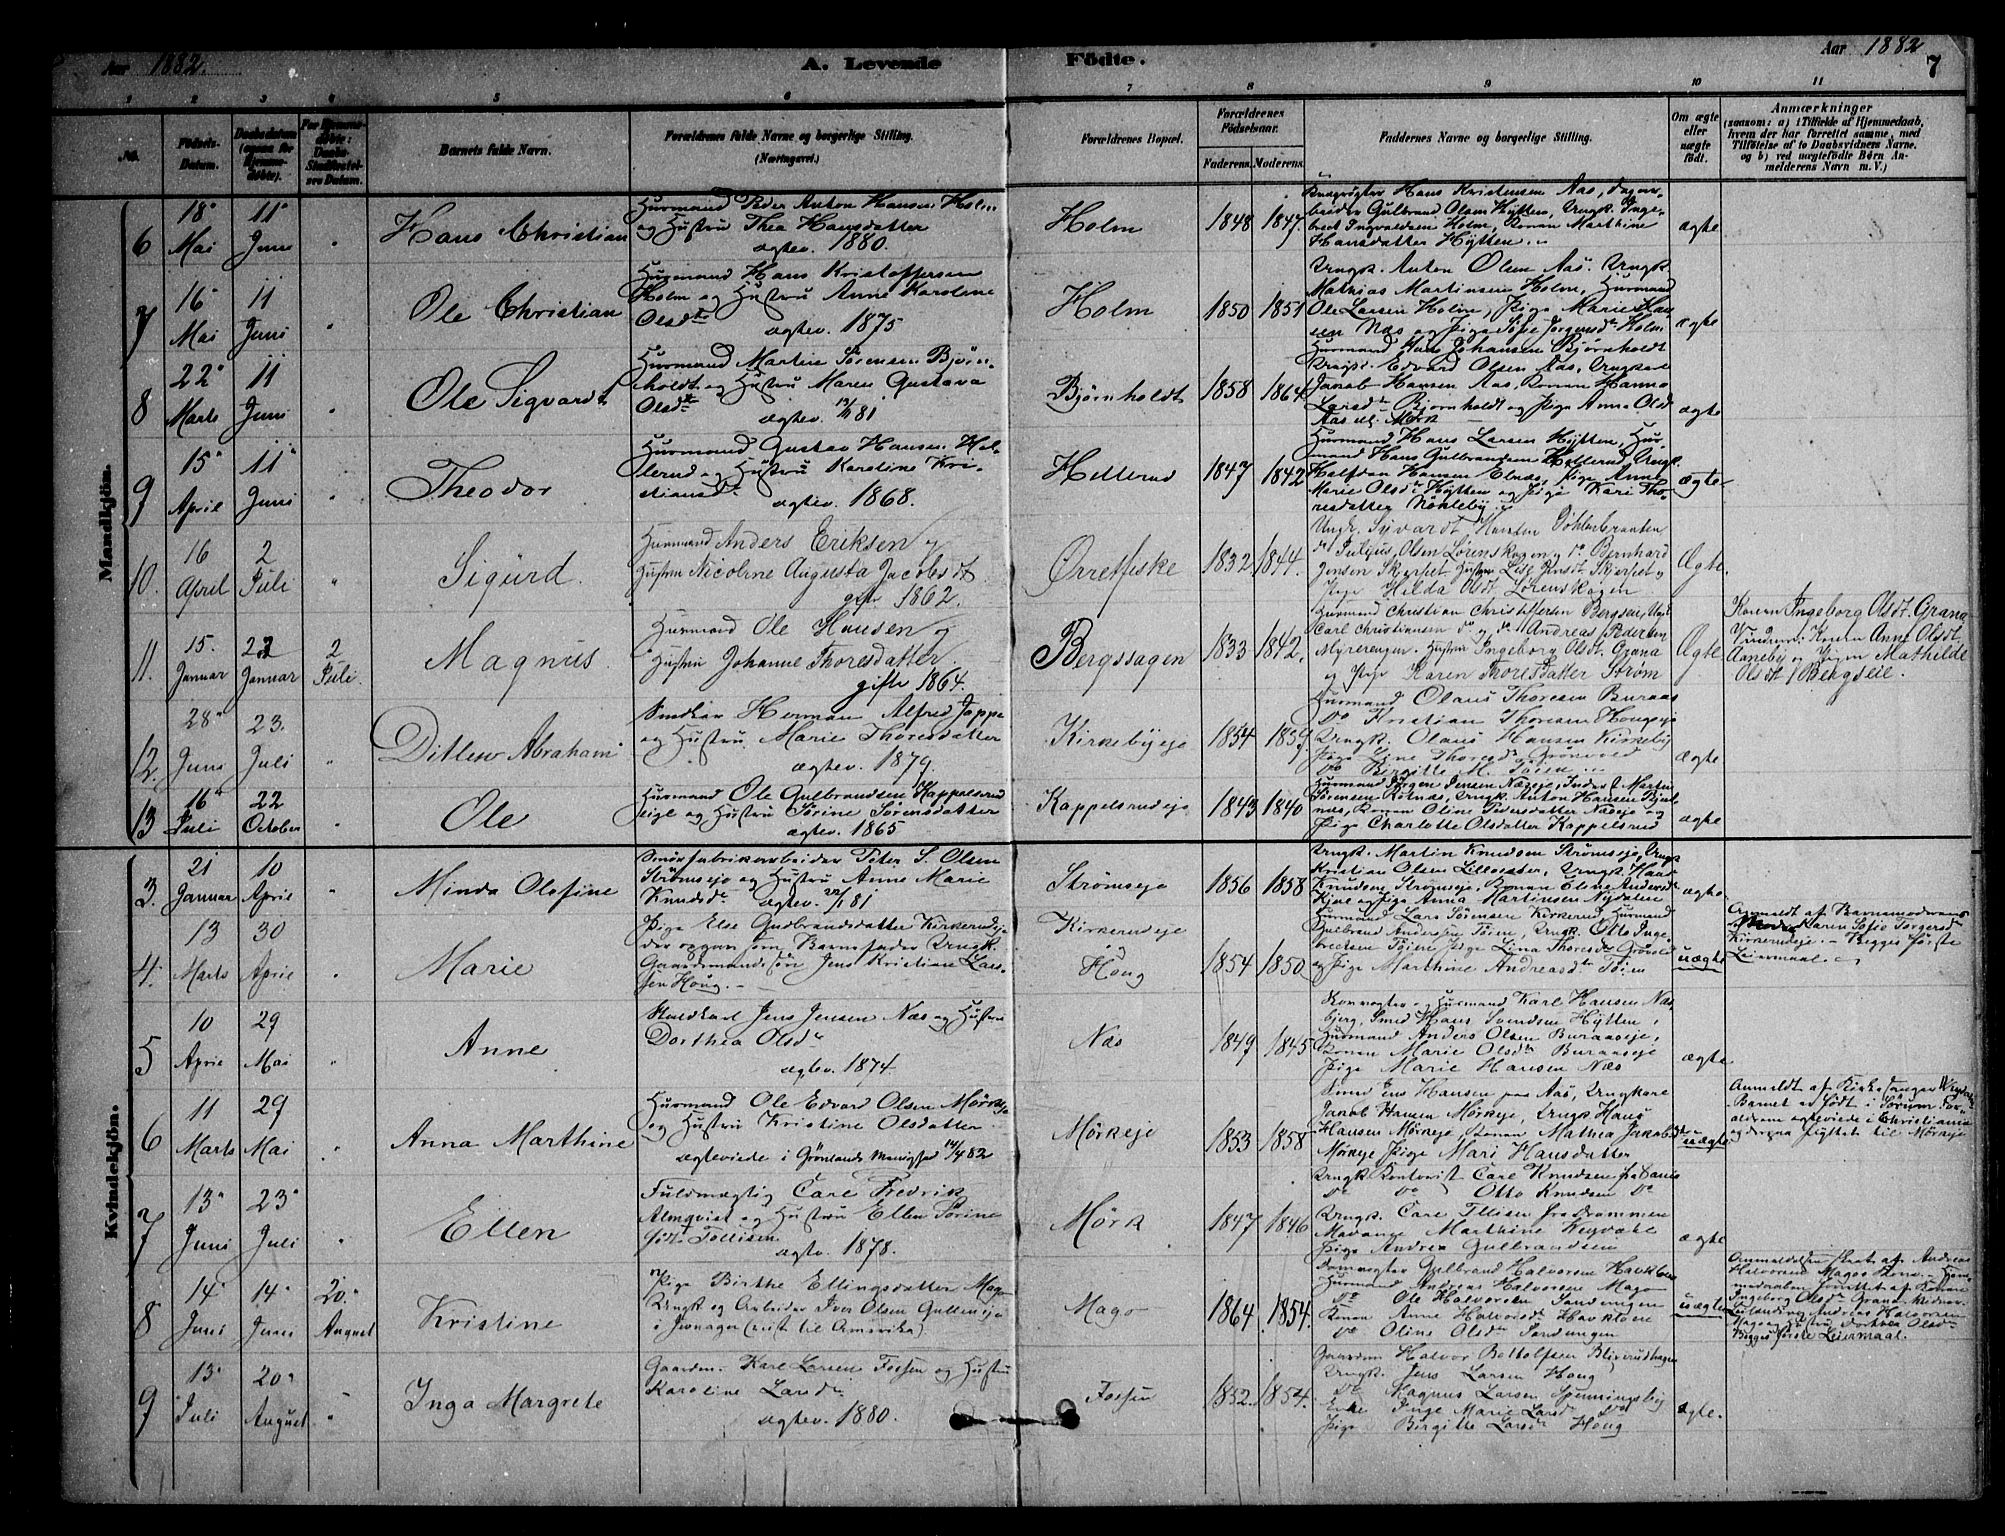 Aar 1882.
A. Levende
Födte.
Aar 1882
7
1 2 3 4 5 6 7 8 9 10 11
No.
Födsels-Datum.
Daabsdatum (ogsaa for Hjemmedöbte).
For Hjemmedöbte: Daabs Stadfæstelses Datum.
Barnets fulde Navn.
Forældrenes fulde Navne og borgerlige Stilling.
(Næringsvei.)
Forældrenes Bopæl.
Forældrenes Födselsaar.
Faderens. Moderens.
Faddernes Navne og borgerlige Stilling.
Om ægte eller uægte födt.
Anmærkninger
(saasom: a) i Tilfælde af Hjemmedaab,
hvem der har forrettet samme, med
Tilföielse af to Daabsvidners Navne,
og b) ved uægtefödte Börn An-
melderens Navn m. V.)
Mandkjön.
6
18 Mai
11 Juni
Hans Christian
Husmand Peder Anton Hansen Holm
og Hustru Thea Hansdatter
ægtev. 1880.
Holm
1848 1847
Hans Kristensen Aas, Dagar-
beider Gulbrand Olsen Hytten, Ungk. Inge-
bret Ingvaldsen Holm, Konen Marthine
Hansdatter Hytten
ægte
7
16 Mai
11 Juni
Ole Christian
Husmand Hans Kristoffersen
Holm og Hustru Anne Karoline
Olsdtr
ægtev. 1875
Holm
1850 1851
Ungk. Anton Olsen Aas. Ungk.
Mathias Martinsen Holm, Husmand
Ole Larsen Holm, Pige Marie Han-
sen Næs og Pige Sofie Jørgensdtr Holm
ægte
8
22 Marts
11 Juni
Ole Sigvardt
Husmand Martin Sørensen Bjørn-
holdt og Hustru Maren Gustava
Olsdtr
ægtev. 81
Bjørnholdt
1858 1864
Husmand Hans Johansen Bjørnholdt
Ungk. Edvard Olsen Aas, Ungkar
Jakob Hansen Aas, Konen Hanna
Larsdtr Bjørnholdt og Pige Anna Olsd
Aas Mørk
ægte
9
15 April
11 Juni
Theodor
Husmand Gustav Hansen Hel-
lerud og Hustru Karoline Kri-
stiansdtr
ægtev. 1868.
Hellerud
1847 1842
Husmand Hans Larsen Hytten, Hus-
mand Hans Gulbrandsen Hellerud, Ungk.
Halfdan Hansen Elnæs, Pige Anne
Marie Olsdtr Hytten og Pige Kari Tho-
resdatter Nøkleby
ægte
10.
16 April
2 Juli
Sigurd.
Husmand Anders Eriksen og
Hustru Nicoline Augusta Jacobsdt.
gift 1862.
Ørretfiske
1832 1844.
Ungk. Syvardt Hansen
do Julius Olsen Lørenskogen og do Bernhard
Jensen Skerpet Hustru Lise Jensdt Skjerpet og
Pige Hilda Olsdt Lørenskogen
Ægte
11.
15. Januar
22 Januar
2 Juli.
Magnus.
Husmand Ole Hansen og
Hustru Johanne Thoresdatter.
gifte 1864.
Bergssagen
1833 1842.
Husmand Christian Christiffersen Bergseie, Ungk
Carl Christiansen do og do Andreas Pedersen
Myrerengen. Hustru Ingeborg Olsdt. Grana
og Pige Karen Thoresdatter Strøm
Ægte
Konen Ingeborg Olsdt. Grana
Vidner: Konen Anne Olsdt,
Aaneby og Pigen Mathilde
Olsdt Bergseie.
12.
28 Juni
23. Juli
Ditlew Abraham
Snedker Herman Alfred Jappe
og Hustru Marie Thoresdatter
ægtev. 1879.
Kirkebyeje
1854 1859
Husmand Olaus Thoresen Buraas
Do Kristian Thoresen Hougseje
Ungk. Olaus Hansen Kirkeby
Pige Line Thoresdtr Grønvold
Do Birgitte M.
ægte
13
16 Juli
22 October
Ole
Husmand Ole Gulbrandsen Kappelsrud
eie og Hustru Sørine Sørensdatter
ægtev. 1865
Kappelsrudeje
1843 1840
Husmand Jørgen Jensen Næseje, Martin
Sørensen Kolnæs, Ungk. Anton Hansen
næs, Konen Oline Pedersdatter Næseje og
Pige Charlotte Olsdatter Kappelsrud
ægte
Kvindekjön.
3.
21 Januar
10 April
Minda Olefine
Smørfabrikarbeider Peter S. Olsen
Strømseje og Hustru Anne Marie
Knudsdtr ægtev. 81
Strømseje
1856 1858
Ungk. Martin Knudsen Strømseje, Ungk
Kristian Olsen Lilleseter, Ungk. Hans
Knudsen Strømseje, Konen Eline Andersdtr
og Pige Anna Martinsen Nydalen
ægte
4.
13 Marts
30 April
Marie
Pige Else Gudbrandsdatter Kirkerudeje
der opgav som Barnefader Ungk.
Gaardmandssøn Jens Kristian Lar-
sen Houg.
Kirkerudeje
Houg
1854 1850
Husmand Lars Sørensen Kirkerud, Husmand
Gulbrand Andersen Tøien, Ungk. Otto Inge-
bretsen Tøien Pige Lina Thoresdtr Grønvold
og Pige Marthine Andreasdtr Tøien
uægte
Anmeldt af Barnemoderens
Moder Karen Sofie Torgersd
Kirkerudeje. Begges første
Leiermaal.
5
10 April
29 Mai
Anne
Staldkarl Jens Jensen Næs og Hustru
Dorthea Olsdtr
ægtev. 1874
Næs
1849 1845
Husmand Karl Hansen Næs
bjerg, Smed Hans Svendsen Hytten,
Husmand Anders Olsen Buraaseje,
Konen Marie Olsdtr Buraaseje
Pige Marie Hansen Næs
ægte
6
11 Marts
29 Mai
Anna Marthine
Husmand Ole Edvard Olsen Mørkeje
og Hustru Kristine Olsdatter
ægteviede i Grønlands Menighed 14/4 82
Mørkeje
1853 1858
Smed Hansen paa Aas, Ungkarl
Jakob Hansen Mørkeje, Ungk. Hans
Hansen Mørkeje, Konen Mathea Jakobsd
Mørkeje Pige Mari Hansdatter
uægte
Anmeldt af Kirkesanger
Barnet er født i Sørum For-
ældrene ægteviede i Christiania
og derpaa flyttet til Mørkeje
7
13 Juni
23 Juli
Ellen
Fuldmægtig Carl Fredrik
Almqvist og Hustru Ellen Sørine
født Tollisen
ægtv. 1878.
Mørk
1847 1846
Ungk. Kontorist Carl Knudsen fra
Do Do Otto Knudsen Do
Ungk. Carl Tllisen fra Drammen
Madame Marthine
Pige Andrea Gulbrandsen
ægte
8
14 Juni
14 Juni
20. August
Kristine
Pige Birthe Ellingsdatter Mago
Ungk og Arbeider Iver Olsen Gulleneje
i (reist til Amerika)
Mago
1864 1854.
Gulbrand Halvorsen Haukleven
Husmand Andreas Halvorsen Mago
Do Ole Halvorsen Sandengen
Konen Anne Halvorsdtr Haukleven
Do Oline Olsdtr Sandengen
uægte
Anmeldelsen skeet af Andreas
Halvorsens Magos Kone. Hjem-
medaaben forrettet af Konen
Ingeborg Olsdtr Grana. Vidner:
Andreas Halvorsen
Mago og Hustru Dorthea Olsdtr
Begges første Leiermaal.
9
13 Juli
20 August
Inga Margrete
Gaardm. Karl Larsen Fossen og Hustru
Karoline Larsdtr
ægtev. 1880.
Fossen
1852 1854.
Gaardm Halvor Bottolfsen Bliverudhagen
Ungk. Jens Larsen Houg
Do Magnus Larsen Spenningsby
Enke Inge Marie Larsdtr Do
Pige Birgitte Larsdtr Houg
ægte.